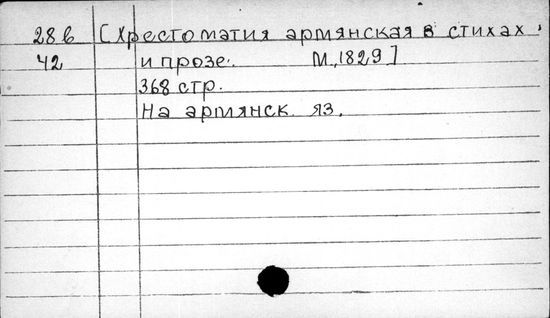 28 б [Хрестоматия армянская в стихах
42 и прозе. М., 1829]
368 стр.
На армянск. яз.